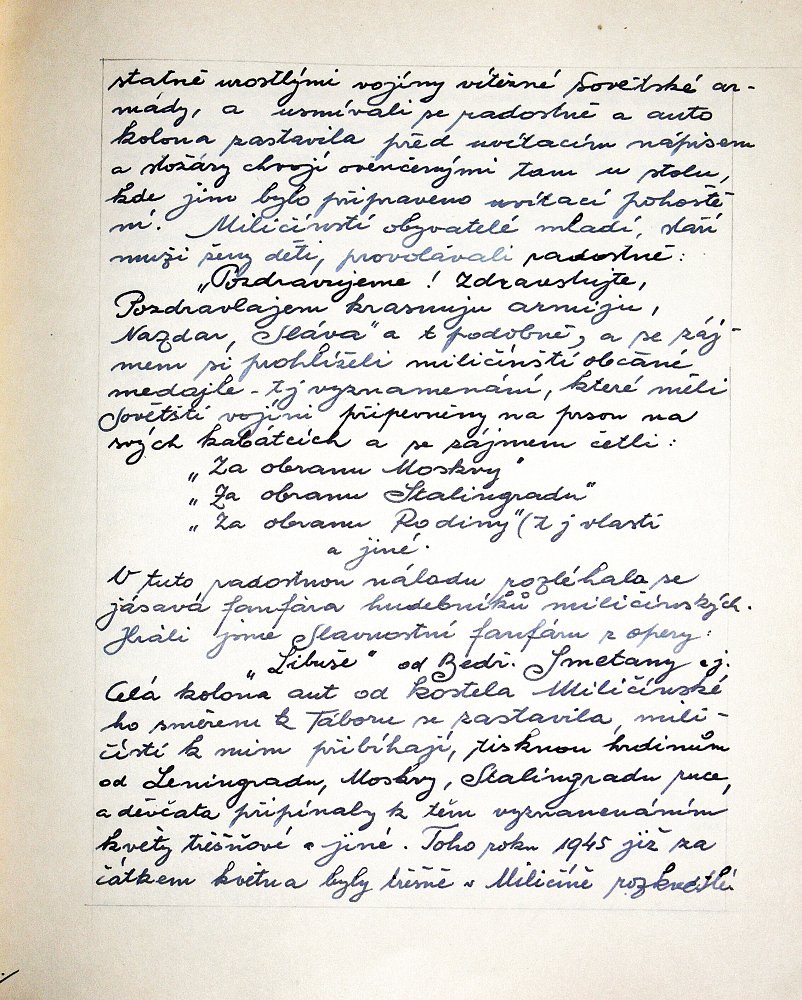 statně urostlými vojíny vítězné Sovětské ar-
mády, a usmívali se radostně a auto
kolona zastavila před uvítacím nápisem
a stožáry chvojí ověnčenými tam u stolu,
kde jim bylo připraveno uvítací pohoště
ní. Miličínstí obyvatelé mladí, staří
muži ženy děti, provolávali radostně:
„Pozdravujeme! Zdravstvujte,
Pozdravlajem krasnuju armiju,
Nazdar, Sláva" a t podobně, a se záj-
mem si prohlíželi miličínští občané
medajle - tj vyznamenání, které měli
Sovětští vojíni připevněny na prsou na
svých kabátcích a se zájmem četli:
„Za obranu Moskvy"
„Za obranu Stalingradu"
„Za obranu Rodiny" (t j vlasti
a jiné.
V tuto radostnou náladu rozléhala se
jásavá fanfára hudebníků miličínských.
Hráli jsme Slavnostní fanfáru z opery:
„Libuše" od Bedř. Smetany a j.
Celá kolona aut od kostela Miličínské
ho směrem k Táboru se zastavila, mili-
čístí k nim přibíhají, tisknou hrdinům
od Leningradu, Moskvy, Stalingradu ruce,
a děvčata připínaly k těm vyznamenáním
květy třešňové a jiné. Toho roku 1945 již za
čátkem května byly třěšně v Miličíně rozkvetlé